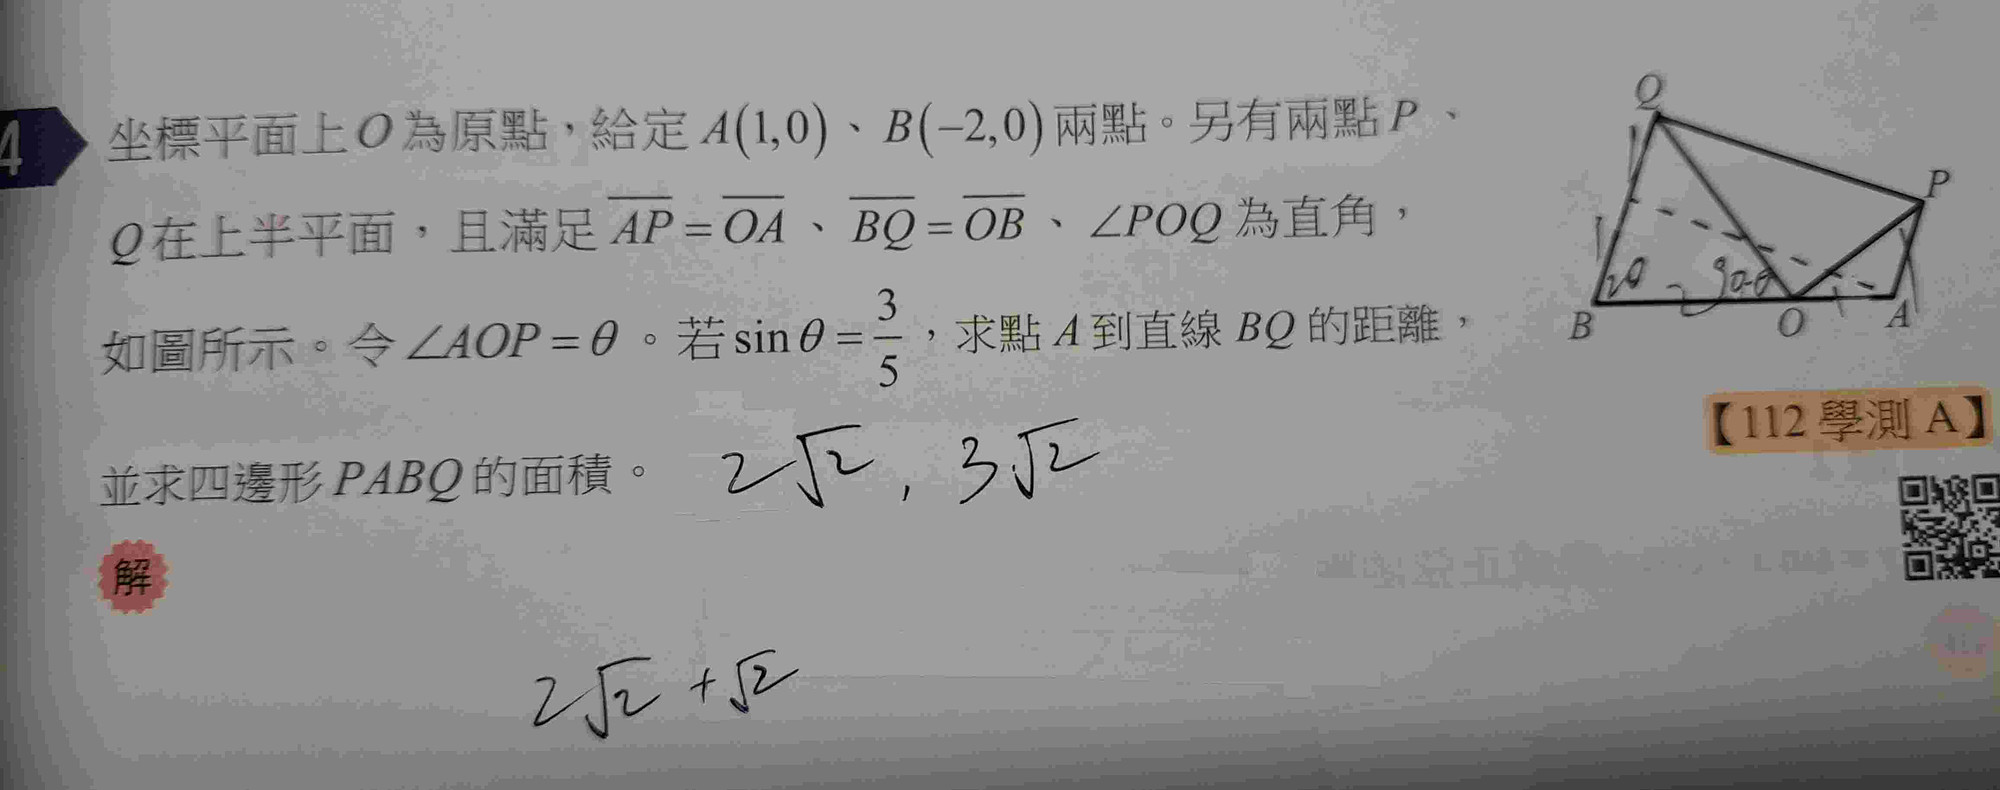 4
坐標平面上O為原點，給定A(1,0)、B(−2,0)兩點。另有兩點P、
Q在上半平面，且滿足\overline{AP}=\overline{OA}、\overline{BQ}=\overline{OB}、∠POQ為直角，
如圖所示。令∠AOP=θ。若sinθ=3/5，求點A到直線BQ的距離，
並求四邊形PABQ的面積。 2√2, 3√2
Q
P
2θ 90-θ
B O A
【112 學測 A】
解
2√2+√2